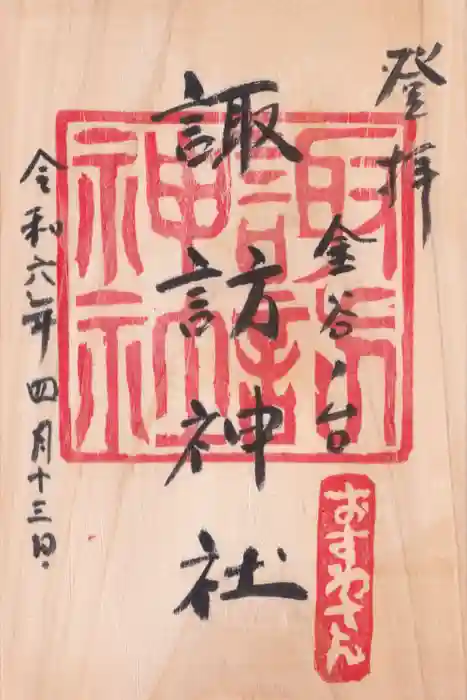 登拝
金谷ノ台
諏訪神社
令和六年四月十三日
諏訪
神社
おすわさん